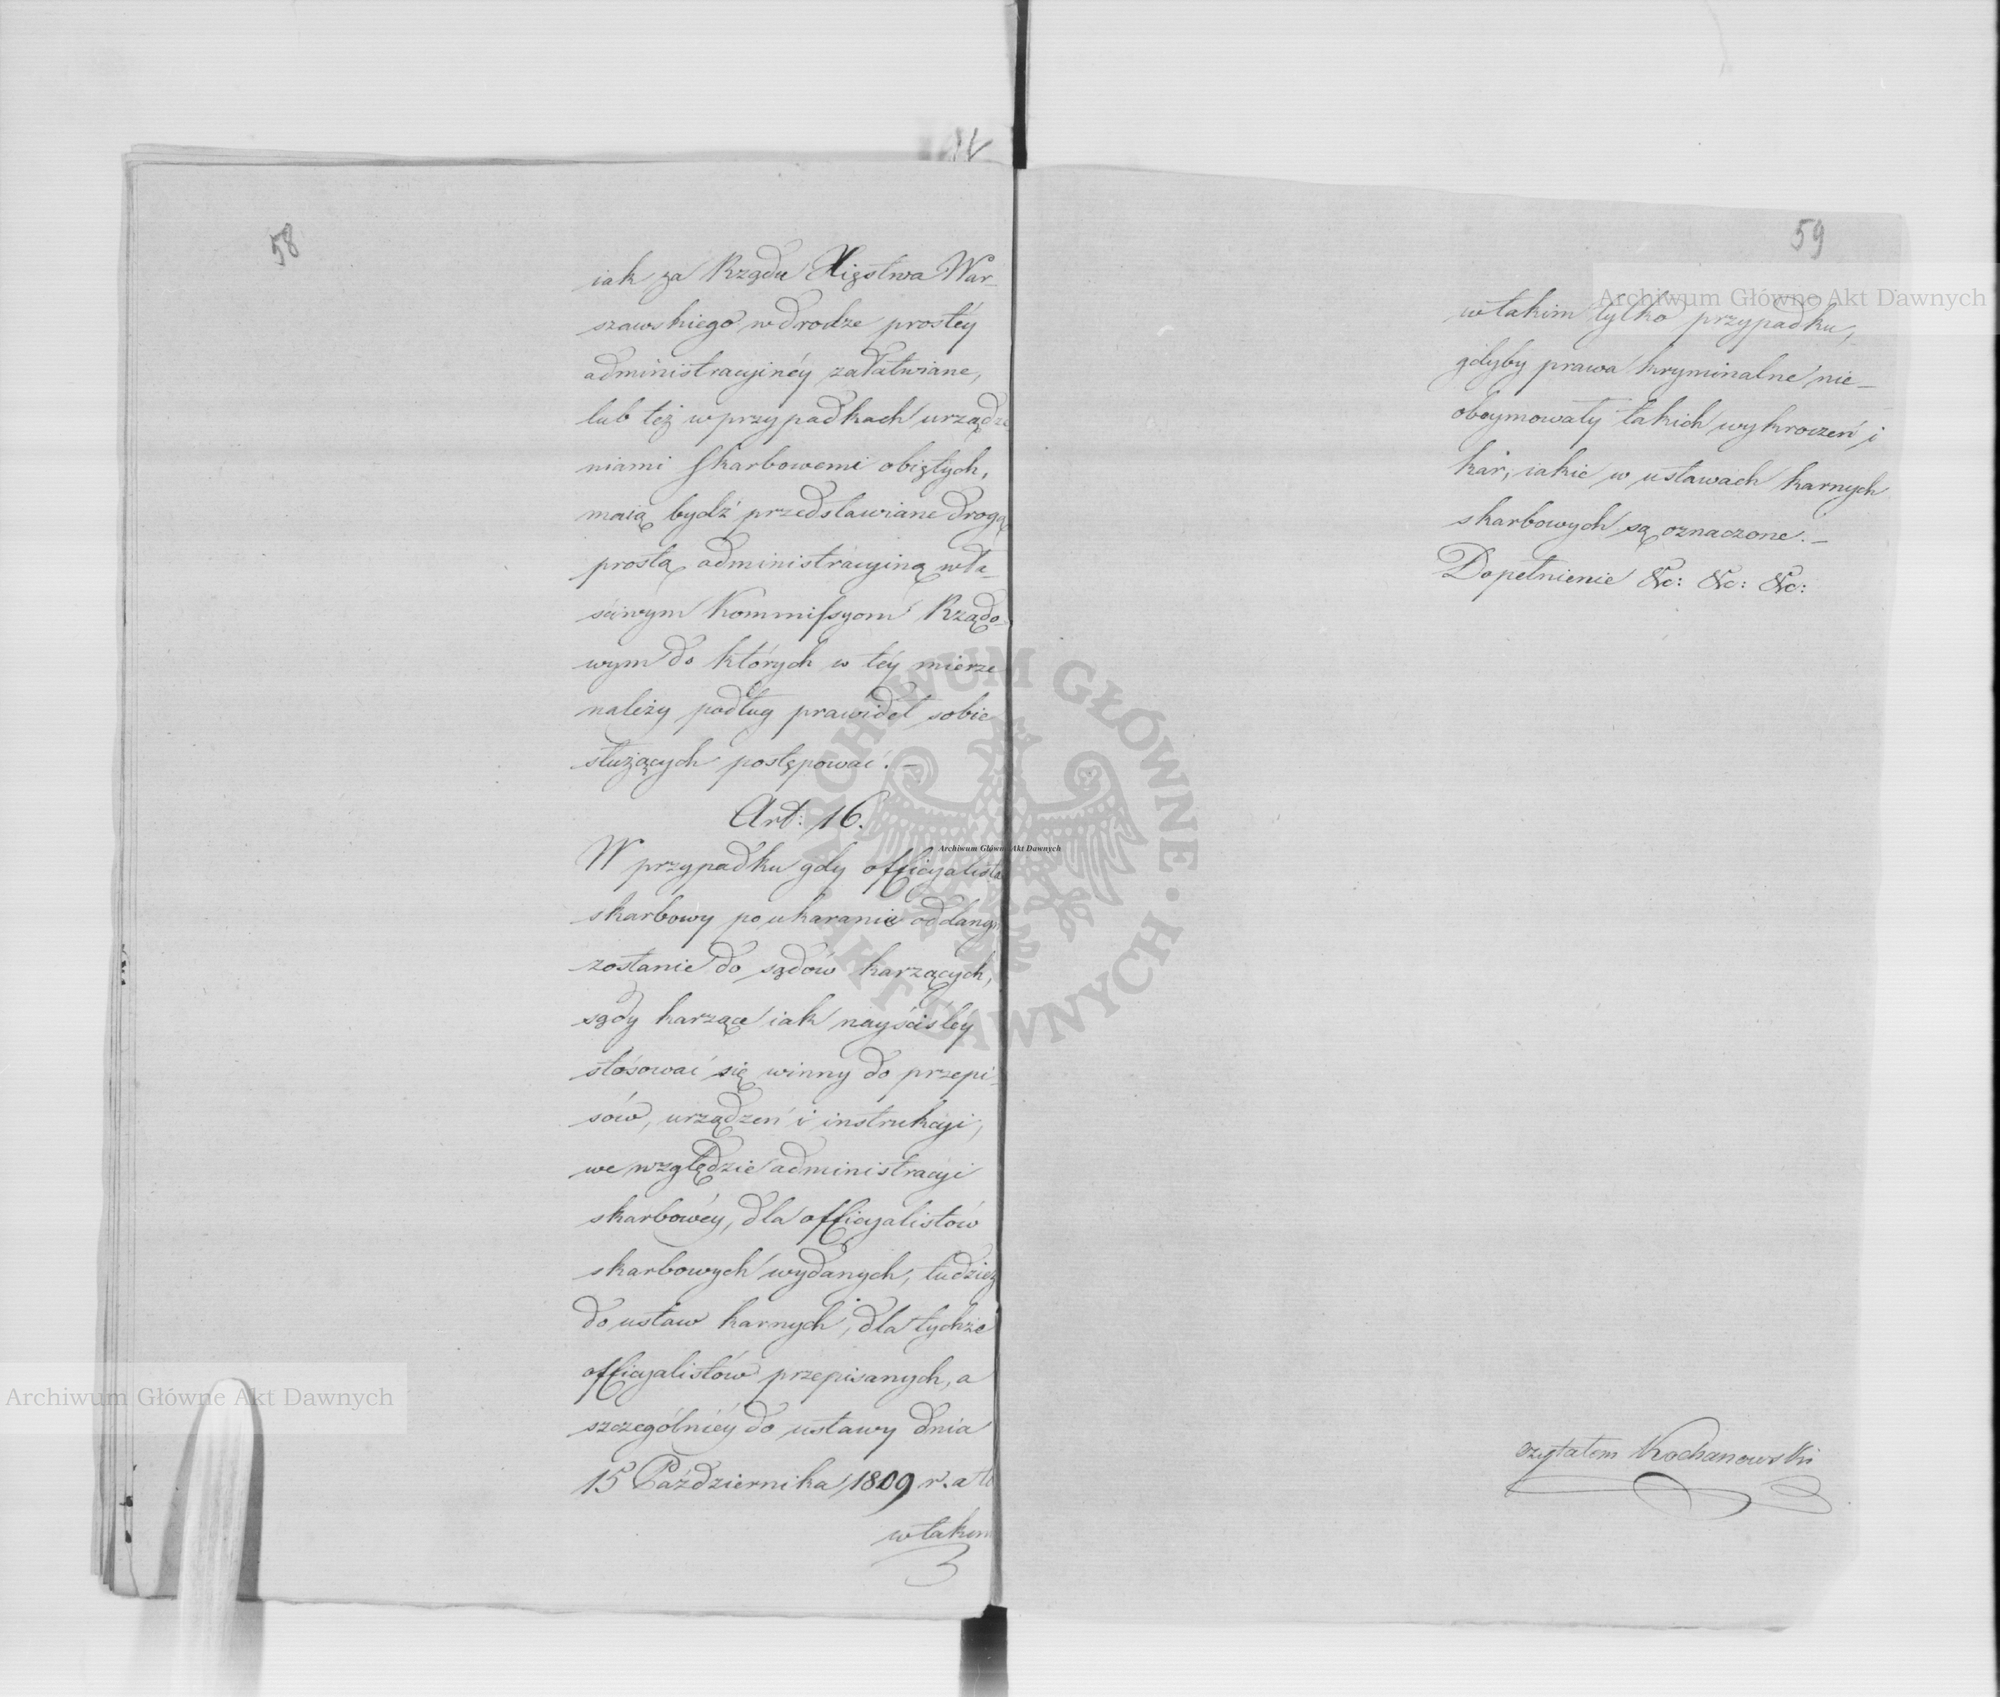 58
iak za Rządu Xięstwa War-
szawskiego, w drodze prostéy
administracyinéy załatwiane,
lub też w przypadkach urządze
niami skarbowemi obiętych,
maią bydź przedstawiane drogą
prostą administracyiną wła-
ściwym Kommissyom Rządo-
wym do których w téy mierze
należy podług prawideł sobie
służących postępować. –
Art: 16.
W przypadku gdy officyalista
skarbowy po ukaranie oddany
zostanie do sądów karzących,
sądy karzące iak nayściśley
stósować się winny do przepi-
sów, urządzeń i instrukcyi,
we względzie administracyi
skarbowéy, dla officyalistów
skarbowych wydanych, tudzież
do ustaw karnych, dla tychże
officyalistów przepisanych, a
szczególniéy do ustawy dnia
15 Października 1809 r. a to
w takim
59
w takim tylko przypadku,
gdyby prawa kryminalne nie-
oboymowały takich wykroczeń i
kar, iakie w ustawach karnych
skarbowych są oznaczone. –
Dopełnienie &c: &c: &c:
czytałem Kochanowski
Archiwum Główne Akt Dawnych
Archiwum Główne Akt Dawnych
Archiwum Główne Akt Dawnych
ARCHIWUM GŁÓWNE · AKT DAWNYCH ·